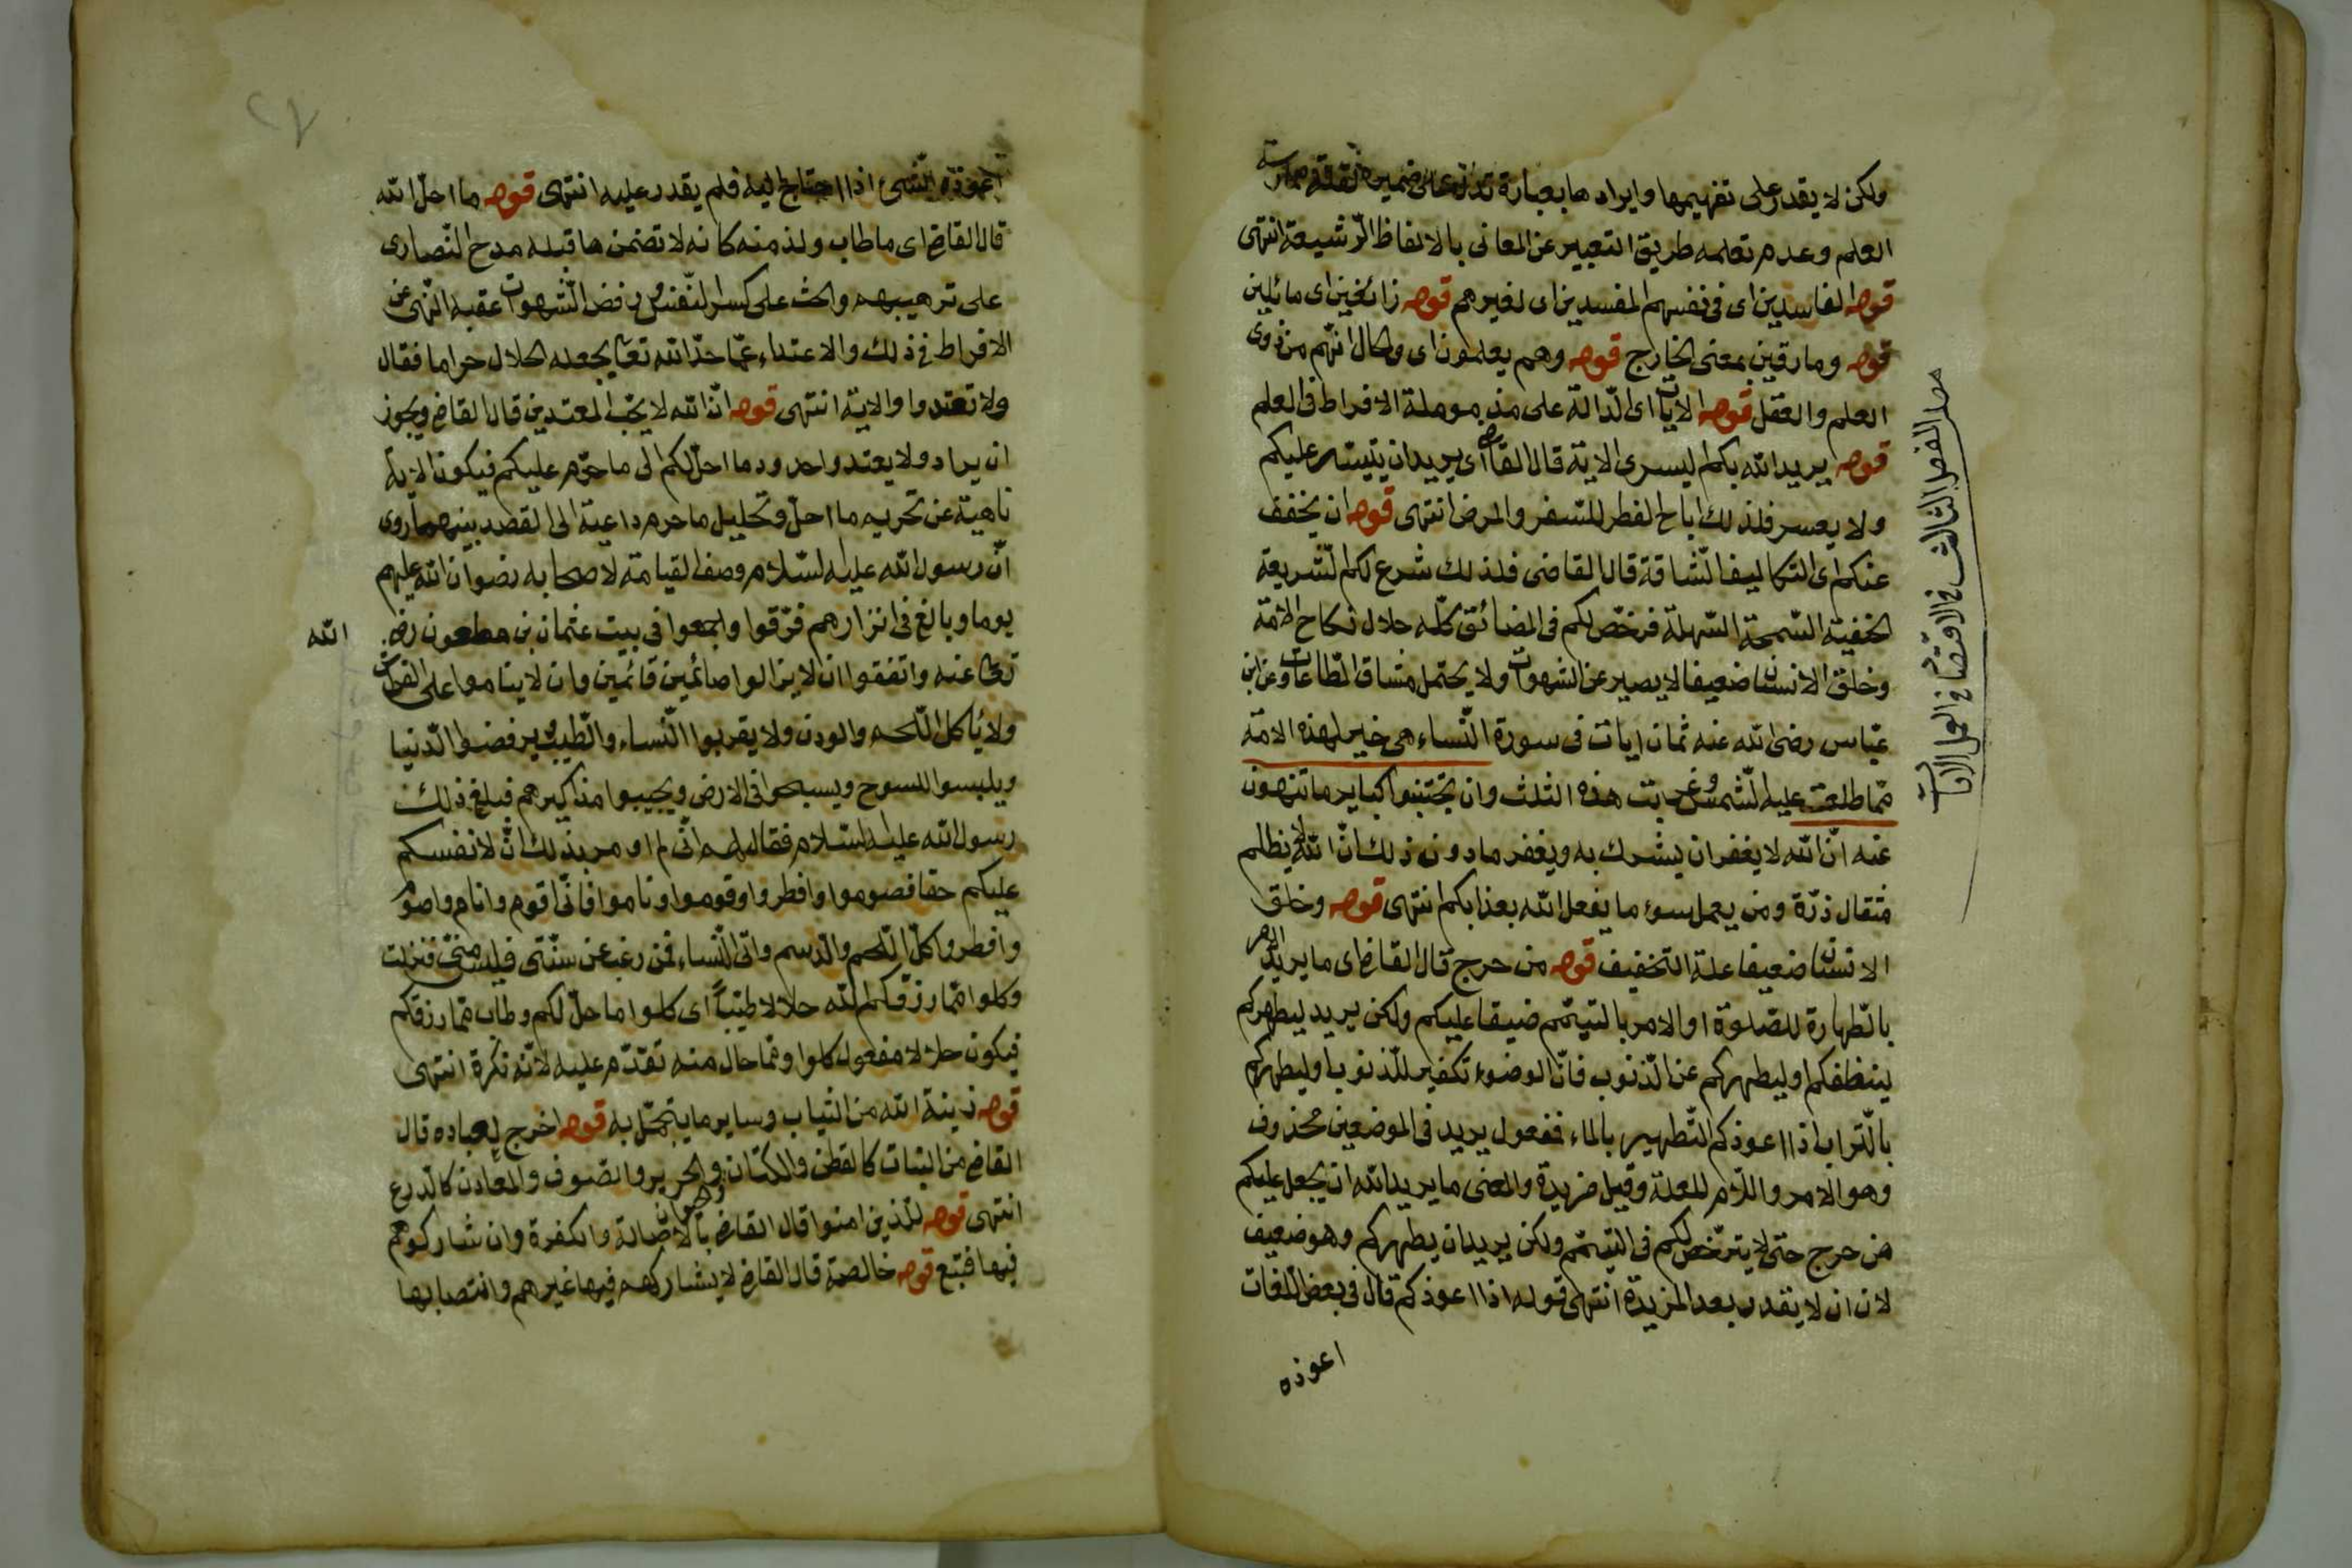 ولكن لا يقدر على تفهيمها وايرادها بعبارة تدل على ضميره لقلة ممارسته
العلم وعدم تعلمه طريق التعبير عن المعانى بالالفاظ الرشيعة انتهى
قوله الفاسدين اى فى نفسهم المفسدين اى لغيرهم قوله زائغين اى مائلين
قوله ومارقين بمعنى الخارج قوله وهم يعلمون اى والحال انهم من ذوى
العلم والعقل قوله الايات اى الدالة على مذمومة الافراط فى العلم
قوله يريد الله بكم اليسرى الاية قال القاضى اى يريد ان ييسر عليكم
ولا يعسر فلذلك اباح الفطر للسفر والمرض انتهى قوله ان يخفف
عنكم اى التكاليف الشاقة قال القاضى فلذلك شرع لكم الشريعة
الحنفية السمحة السهلة فرخص لكم فى المضائق كله حلال نكاح الامة
وخلق الانسان ضعيفا لا يصير عن الشهوات ولا يحتمل مشاق الطاعات وعن ابن
عباس رضى الله عنه ثمان ايات فى سورة النساء هى خير لهذه الامة
مما طلعت عليه الشمس وغربت هذه الثلث وان تجتنبوا كباير ما تنهون
عنه ان الله لا يغفر ان يشرك به ويغفر ما دون ذلك ان الله لا يظلم
مثقال ذرة ومن يعمل سوء ما يفعل الله بعذابكم انتهى قوله وخلق
الانسان ضعيفا علة التخفيف قوله من حرج قال القاضى اى ما يريد الامر
بالطهارة للصلوة او الامر بالتيمم ضيقا عليكم ولكن يريد ليطهركم
لينظفكم او ليطهركم عن الذنوب فان الوضوء تكفير للذنوب او ليطهركم
بالتراب اذا اعوذكم التطهير بالماء فمفعول يريد فى الموضعين محذوف
وهو الامر واللام للعلة وقيل مزيدة والمعنى ما يريد الله ان يجعل عليكم
من حرج حتى لا يترخص لكم فى التيمم ولكن يريد ان يطهركم وهو ضعيف
لان ان لا يقدر بعد المزيدة انتهى قوله اذا اعوذكم قال فى بعض اللغات
اعوذه
الفصل الثالث فى الاقتصاد فى العمل الايات
اعوذه الشئ اذا احتاج اليه فلم يقدر عليه انتهى قوله ما احل الله
قال القاضى اى ما طاب ولذ منه كانه لا تضمن ما قبله مدح النصارى
على ترهيبهم والحث على كسر النفس ورفض الشهوات عقبه النهى عن
الافراط فى ذلك والاعتداء عما حد الله تعا يجعله الحلال حراما فقال
ولا تعتدوا والاية انتهى قوله ان الله لا يحب المعتدين قال القاضى ويجوز
ان يراد ولا يعتدوا حدود ما احل لكم الى ما حرم عليكم فيكون الاية
ناهية عن تحريم ما احل وتحليل ما حرم داعية الى القصد بينهما روى
ان رسول الله عليه السلام وصف القيامة لاصحابه رضوان الله عليهم
يوما وبالغ فى انزارهم فرقوا واجمعوا فى بيت عثمان بن مطعون رضى الله
تعا عنه واتفقوا ان لا يزالوا صائمين قائمين وان لا يناموا على الفراش
ولا يأكل اللحم والودن ولا يقربوا النساء والطيب ويرفضوا الدنيا
ويلبسوا المسوح ويسبحوا فى الارض ويجيبوا مذاكيرهم فبلغ ذلك
رسول الله عليه السلام فقال لهم انى لم اومر بذلك ان لانفسكم
عليكم حقا فصوموا وافطروا وقوموا وناموا فانى اقوم وانام واصوم
وافطر واكل اللحم والدسم واتى النساء فمن رغب عن سنتى فليس منى فنزلت
وكلوا مما رزقكم الله حلالا طيبا اى كلوا ما حل لكم وطاب مما رزقكم
فيكون حلالا مفعول كلوا ومما حال منه تقدم عليه لانه نكرة انتهى
قوله زينة الله من الثياب وساير ما يتجمل به قوله اخرج لعباده قال
القاضى من النبات كالقطن والكتان والحيوان كالحرير والصوف والمعادن كالدرع
انتهى قوله للذين امنوا قال القاضى بالاصالة والكفرة وان شاركوهم
فيها فتبع قوله خالصة قال القاضى لا يشاركهم فيها غيرهم وانتصابها